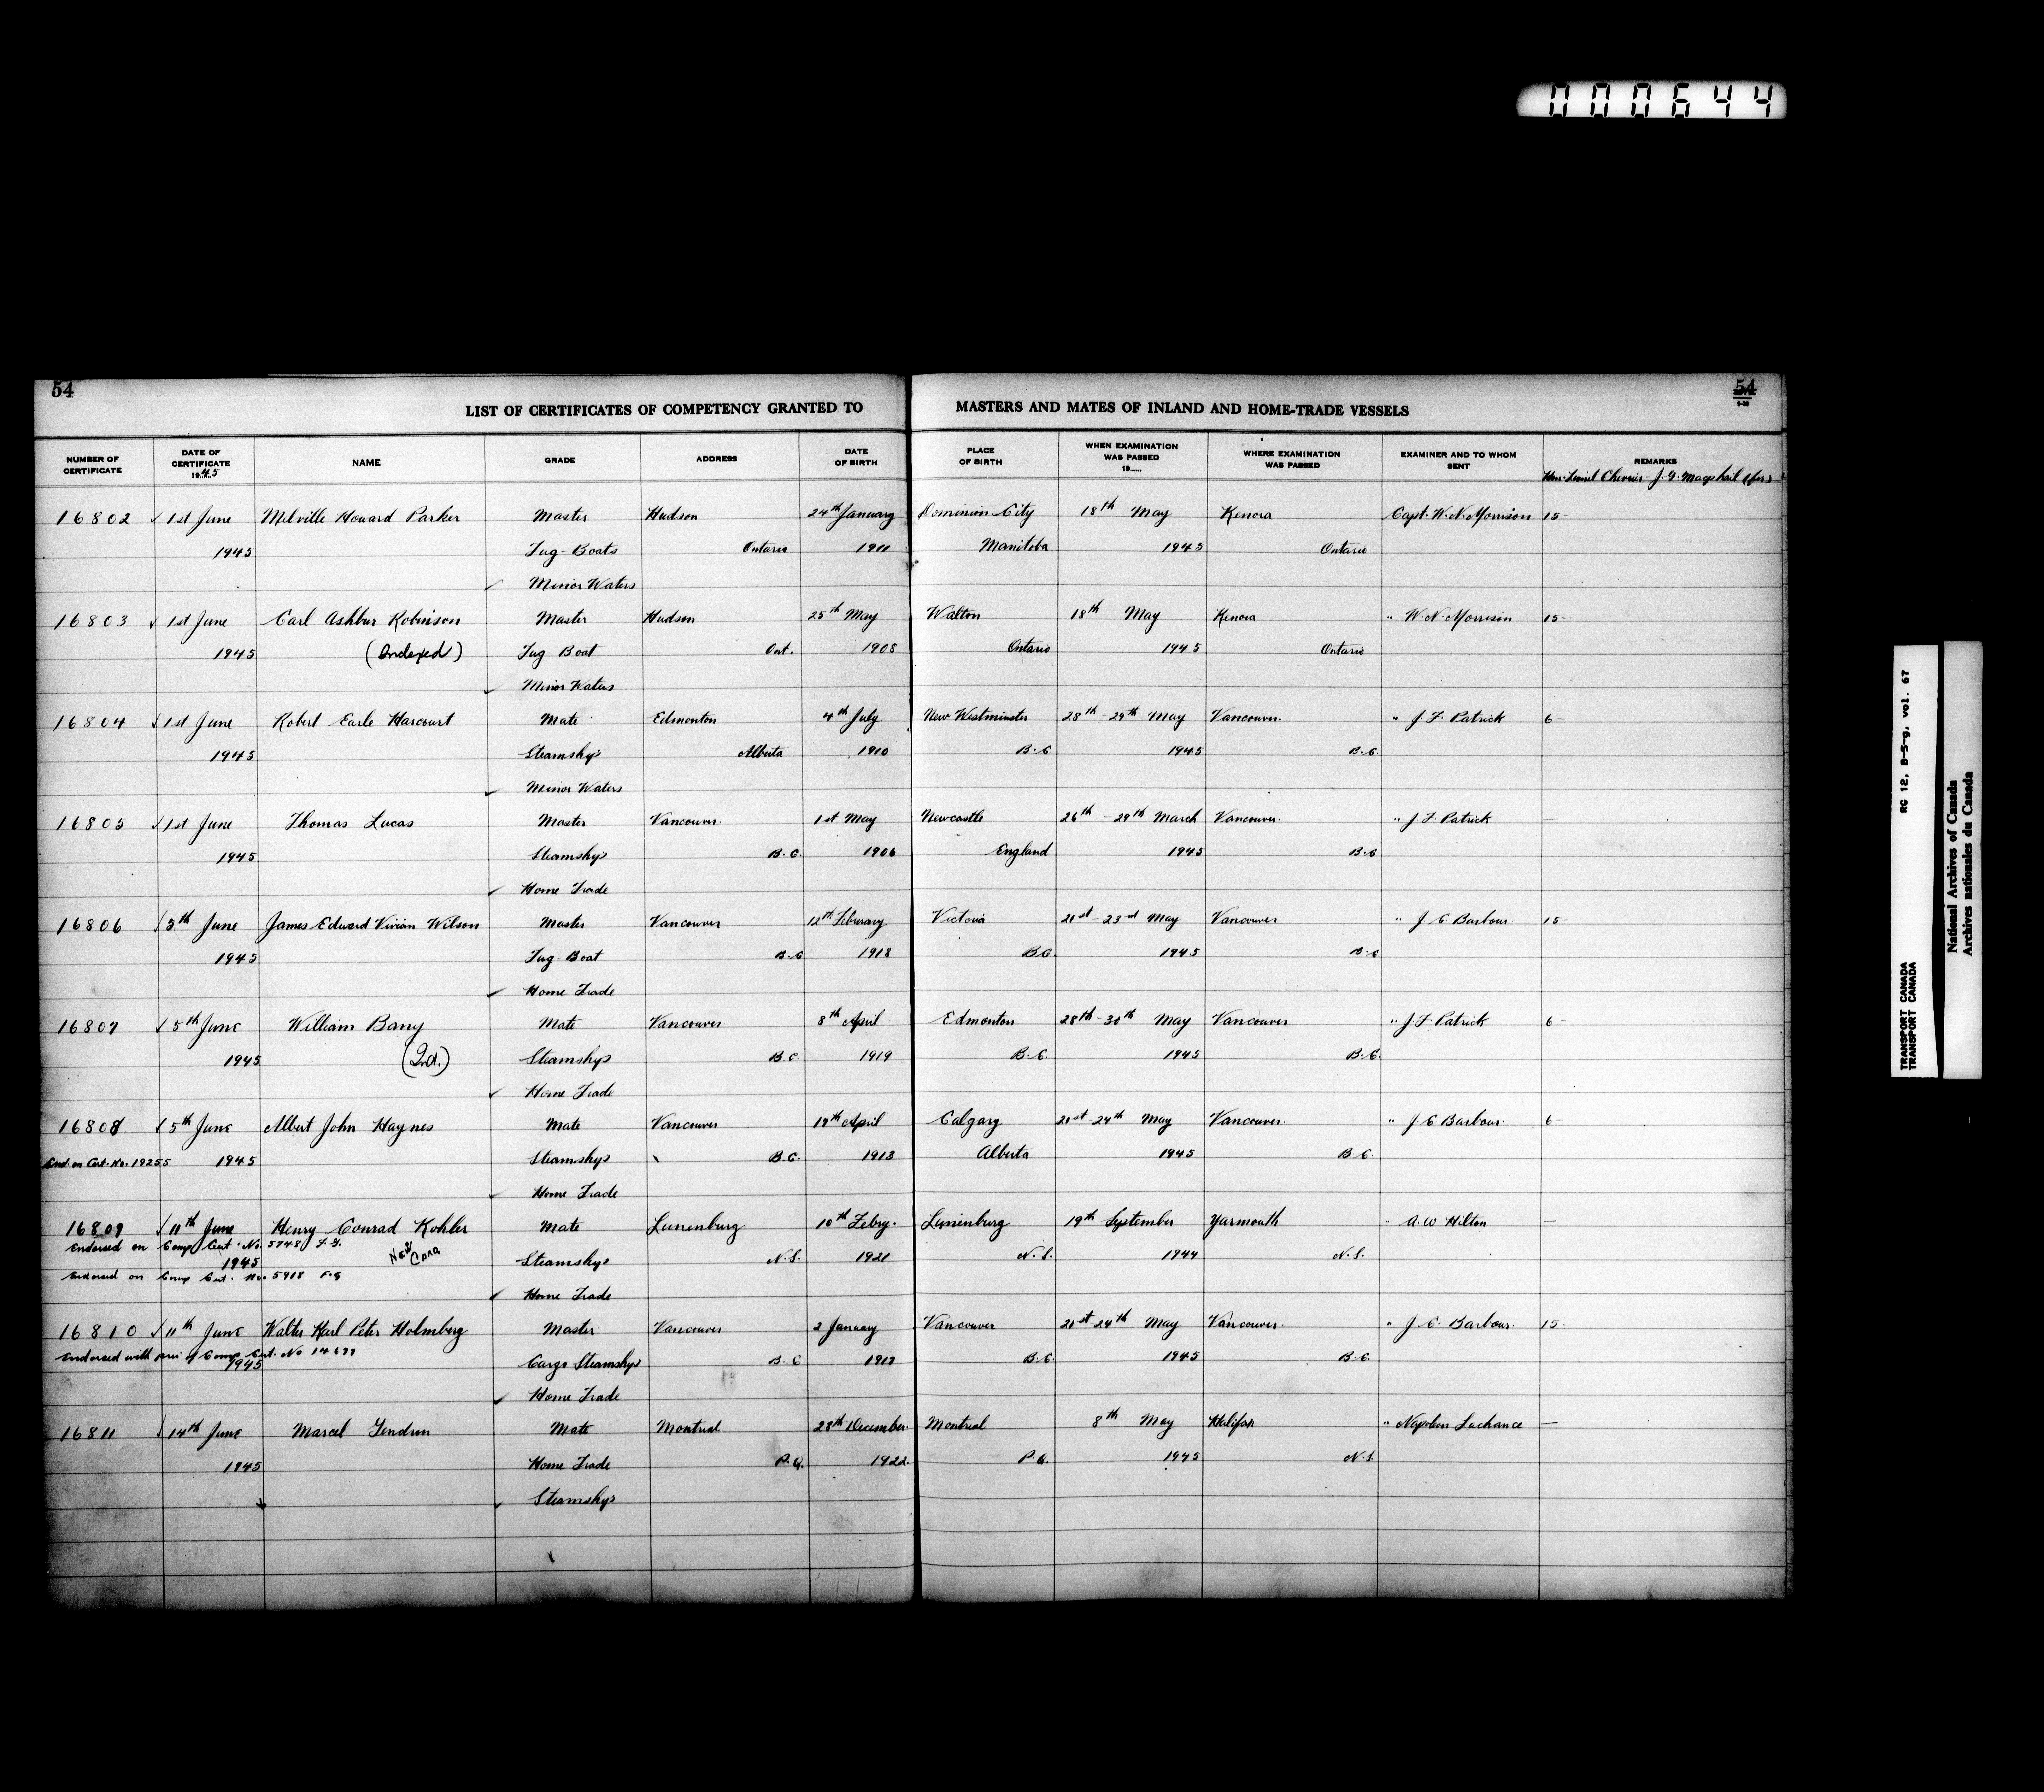 000644
54
54
LIST OF CERTIFICATES OF COMPETENCY GRANTED TO MASTERS AND MATES OF INLAND AND HOME-TRADE VESSELS
NUMBER OF CERTIFICATE DATE OF CERTIFICATE 1945 NAME GRADE ADDRESS DATE OF BIRTH PLACE OF BIRTH WHEN EXAMINATION WAS PASSED 19...... WHERE EXAMINATION WAS PASSED EXAMINER AND TO WHOM SENT REMARKS
16802 1st June Melville Howard Parker Master Hudson 24th January Dominion City 18th May Kenora Capt. W. N. Morrison 15-
1945 Tug-Boats Ontario 1911 Manitoba 1945 Ontario
Minor Waters
16803 1st June Carl Ashbur Robinson Master Hudson 25th May Walton 18th May Kenora " W. N. Morrison 15-
1945 (Indexed) Tug Boat Ont. 1908 Ontario 1945 Ontario
Minor Waters
16804 1st June Robert Earle Harcourt Mate Edmonton 4th July New Westminster 28th-29th May Vancouver " J. F. Patrick 6-
1945 Steamships Alberta 1910 B.C 1945 B.C.
Minor Waters
16805 1st June Thomas Lucas Master Vancouver 1st May Newcastle 26th-29th March Vancouver " J. F. Patrick —
1945 Steamships B.C. 1906 England 1945 B.C
Home Trade
16806 5th June James Edward Vivian Wilson Master Vancouver 12th Feburary Victoria 21st-23rd May Vancouver " J. C Barbour 15
1945 Tug Boat B.C 1918 B.C. 1945 B.C
Home Trade
16807 5th June William Barry Mate Vancouver 8th April Edmonton 28th-30th May Vancouver " J. F. Patrick 6-
1945 (Ind.) Steamships B.C 1919 B.C. 1945 B.C.
Home Trade
16808 5th June Albert John Haynes Mate Vancouver 19th April Calgary 21st-24th May Vancouver " J. C Barbour 6-
End. on Cert. No. 19255 1945 Steamships B.C. 1913 Alberta 1945 B.C.
Home Trade
16809 11th June Henry Conrad Kohler Mate Lunenburg 10th Febry. Lunenburg 19th September Yarmouth " A. W Hilton —
Endorsed on Comp Cert. No. 5748 F.G.
1945 New Card Steamships N.S. 1921 N.S. 1944 N.S.
Endorsed on Comp Cert. No. 5918 F.G
Home Trade
16810 11th June Walter Karl Peter Holmberg Master Vancouver 2 January Vancouver 21st-24th May Vancouver " J. C. Barbour 15
Endorsed with of Comp Cert. No 14699
1945 Cargo Steamships B.C 1912 B.C. 1945 B.C.
Home Trade
16811 14th June Marcel Gendron Mate Montreal 28th December Montreal 8th May Halifax " Napoleon Lachance —
1945 Home Trade P.Q. 1922 P.Q. 1945 N.S.
Steamships
TRANSPORT CANADA RG 12, B-5-g, vol. 67
TRANSPORT CANADA
National Archives of Canada
Archives nationales du Canada